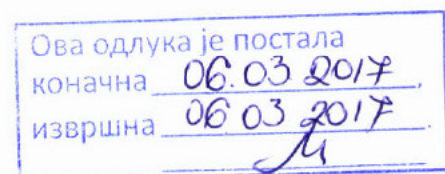 Ова одлука је постала
коначна 06.03 2017,
извршна 06 03 2017.